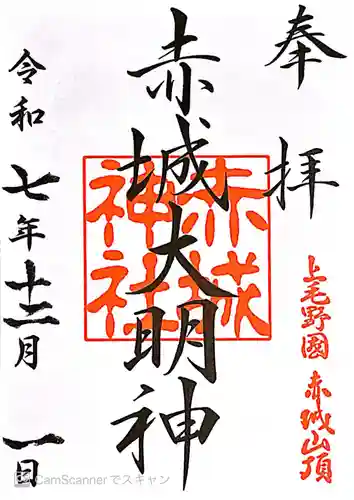 奉拝
上毛野國 赤城山頂
赤城大明神
赤城神社
令和七年十二月一日
CamScannerでスキャン